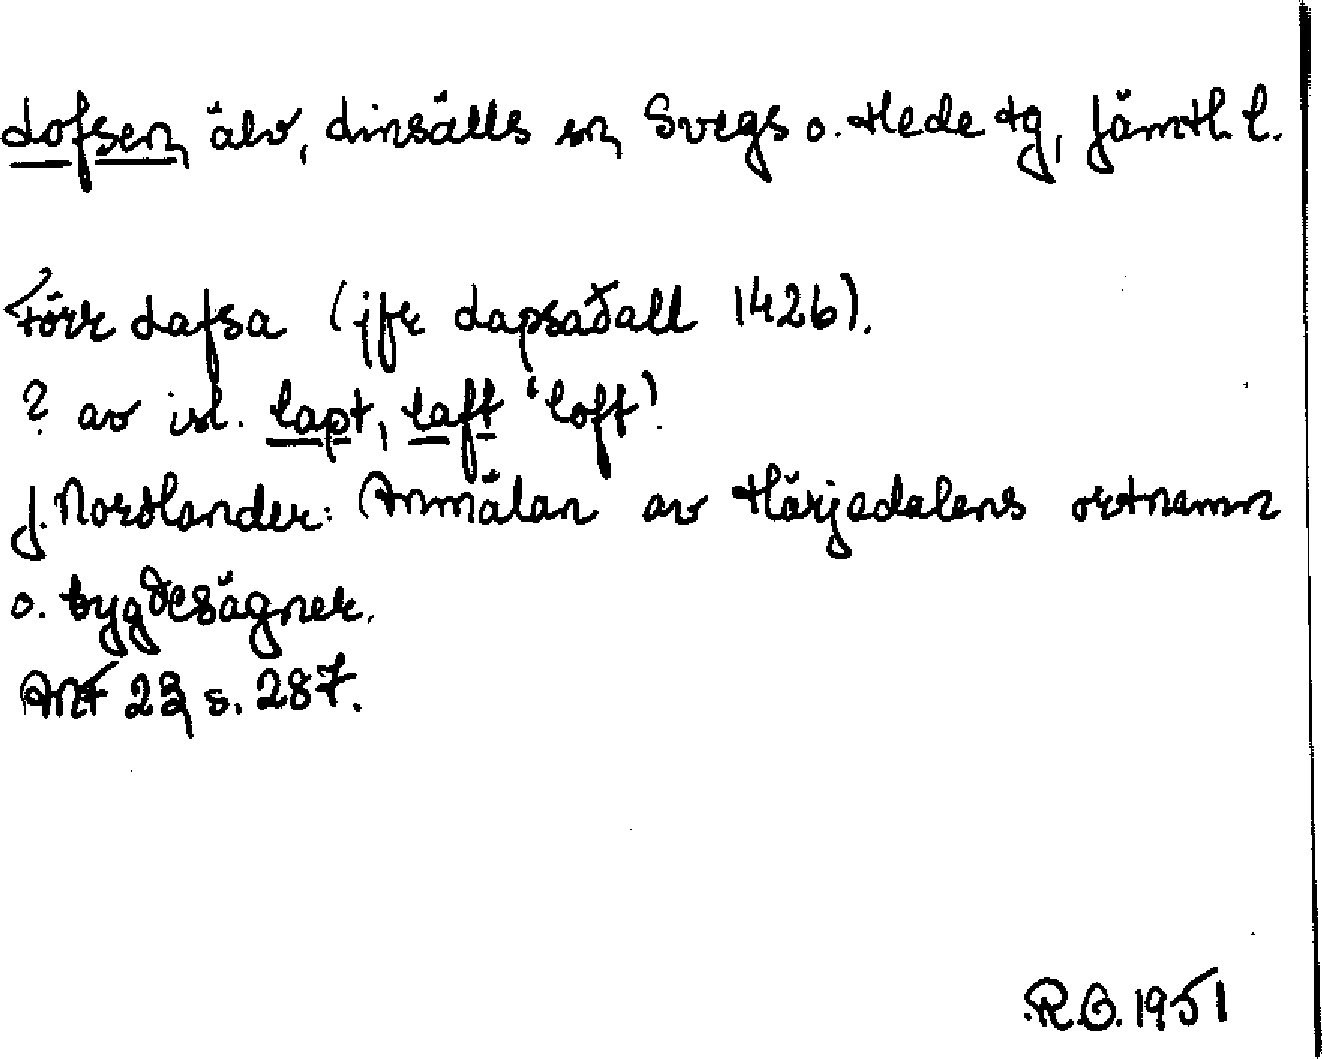 Lofsen, älv, Linsälls sn, Svegs o. Hede tg, Jämtl. l.
Förr Lafsa (jfr Lapsadall 1426).
? av isl. lapt, laft 'loft'.
J. Nordlander: Anmälan av Härjedalens ortnamn
o. bygdesägner.
ANF 23, s. 287.
R.O. 1951